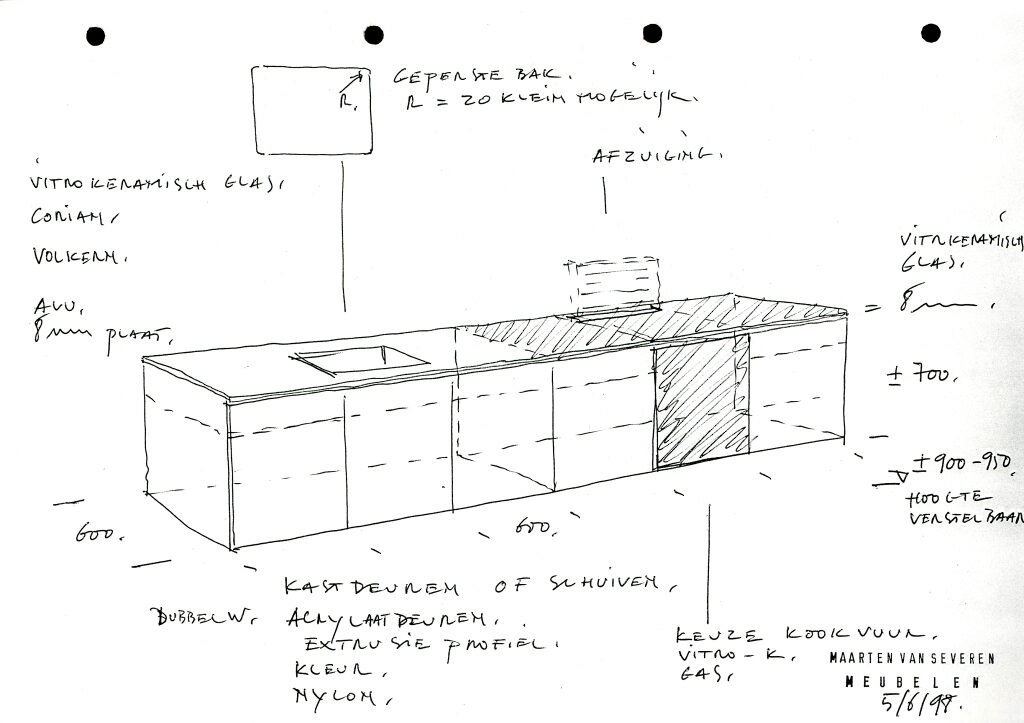 GEPERSTE BAK.
R.
R = ZO KLEIN MOGELIJK.
AFZUIGING.
VITROKERAMISCH GLAS.
CORIAN.
VOLKERN.
ALU.
8mm PLAAT.
VITRKERAMISCH
GLAS.
= 8mm.
± 700.
± 900-950.
HOOGTE
VERSTELBAAR
600.
600.
KASTDEUREN OF SCHUIVEN.
DUBBELW. ACRYLAATDEUREN.
EXTRUSIE PROFIEL.
KLEUR.
NYLON.
KEUZE KOOKVUUR.
VITRO-K.
GAS.
MAARTEN VAN SEVEREN
MEUBELEN